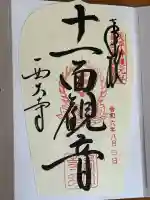 奉拝
十一面観音
西大寺
令和六年八月二日